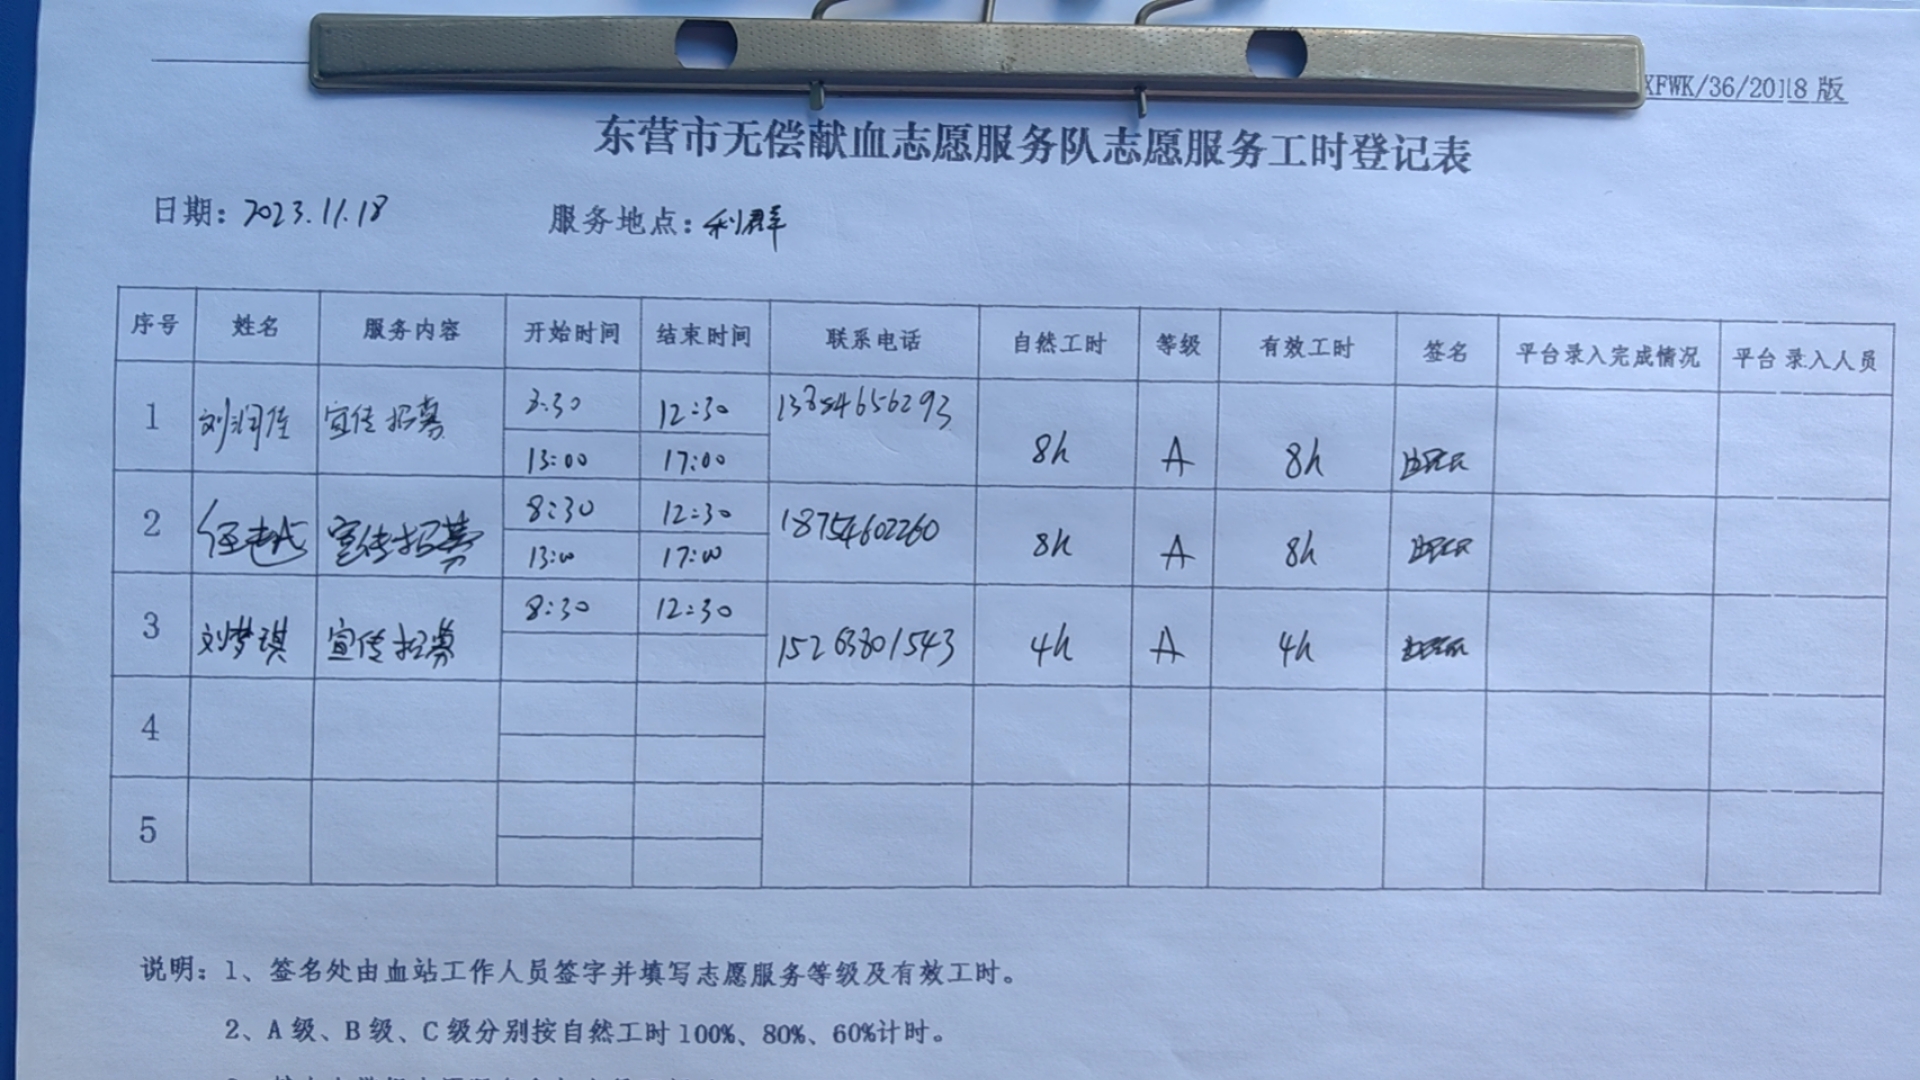 XFWK/36/2018版
东营市无偿献血志愿服务队志愿服务工时登记表
日期：2023.11.18 服务地点：利群
序号 姓名 服务内容 开始时间 结束时间 联系电话 自然工时 等级 有效工时 签名 平台录入完成情况 平台录入人员
1 刘润佳 宣传招募 8:30 12:30 13854656293 8h A 8h
13:00 17:00
2 任 宣传招募 8:30 12:30 18754602260 8h A 8h
13:00 17:00
3 刘梦琪 宣传招募 8:30 12:30 15263801543 4h A 4h
4
5
说明：1、签名处由血站工作人员签字并填写志愿服务等级及有效工时。
2、A级、B级、C级分别按自然工时100%、80%、60%计时。